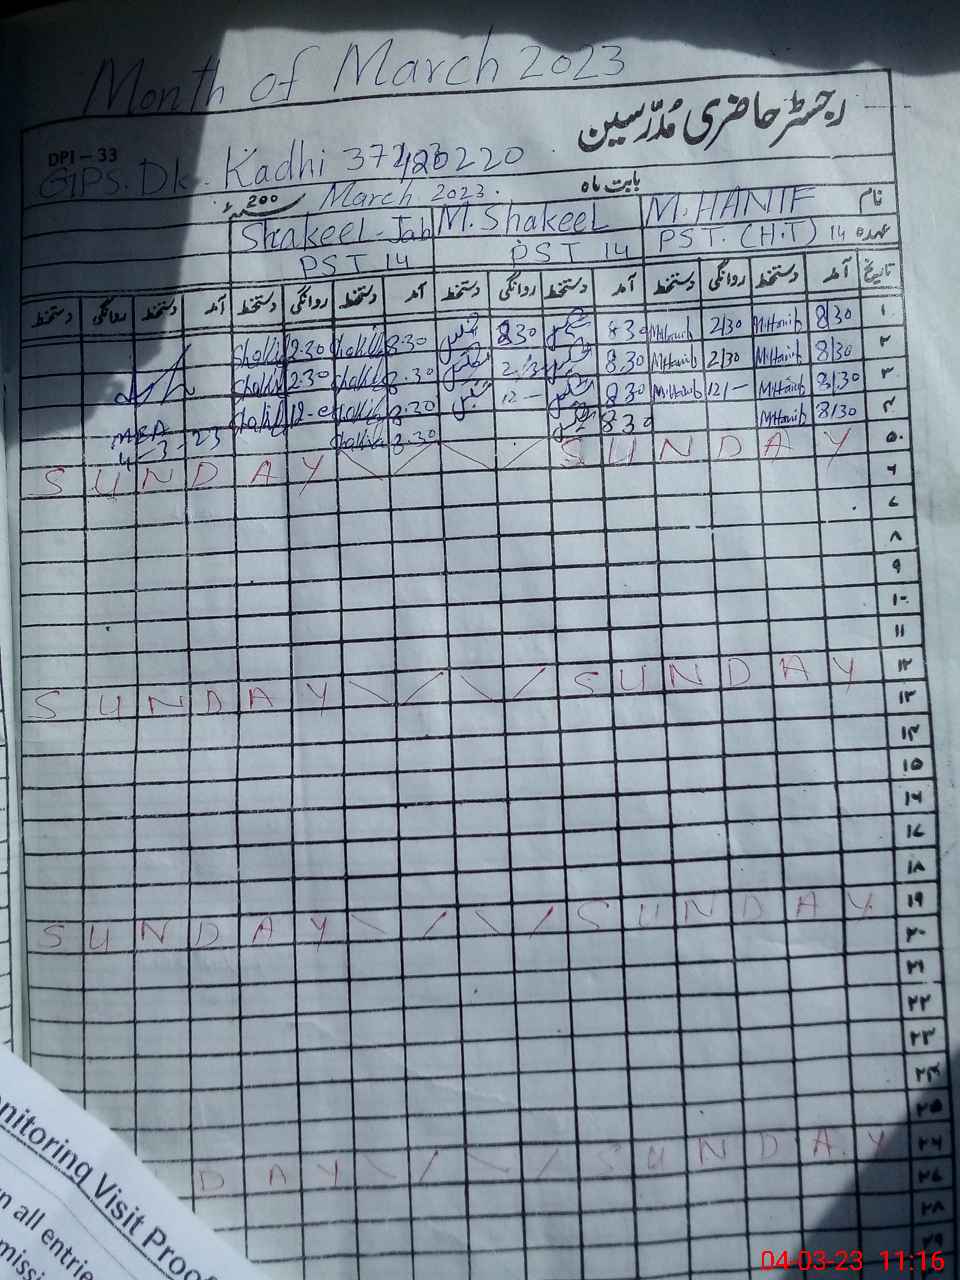 Month of March 2023
رجسٹر حاضری مُدرّسین
DPI – 33
GPS. Dk. Kadhi
بابت ماہ March 2023. 200
نام M. HANIF M. Shakeel Shakeel-Jab
عہدہ PST. (H.T) 14 PST 14 PST 14
تاریخ آمد دستخط روانگی دستخط آمد دستخط روانگی دستخط آمد دستخط روانگی دستخط آمد دستخط روانگی دستخط
۱ 8/30 M.Hanif 2/30 M.Hanif 8 30 8 30 8.30 2.30
۲ 8/30 M.Hanif 2/30 M.Hanif 8.30 8.30 2.30
۳ 8/30 M.Hanif 12/– M.Hanif 8 30 12 – 8.30
۴ 8/30 M.Hanif 8 30 8.30
MEA
4-3-23
۵ SUNDAY SUNDAY
۶
۷
۸
۹
۱۰
۱۱
۱۲ SUNDAY SUNDAY
۱۳
۱۴
۱۵
۱۶
۱۷
۱۸
۱۹ SUNDAY SUNDAY
۲۰
۲۱
۲۲
۲۳
۲۴
۲۵
۲۶ SUNDAY DAY
۲۷
۲۸
۲۹
nitoring Visit Proof
n all entrie
missi
04-03-23 11:16